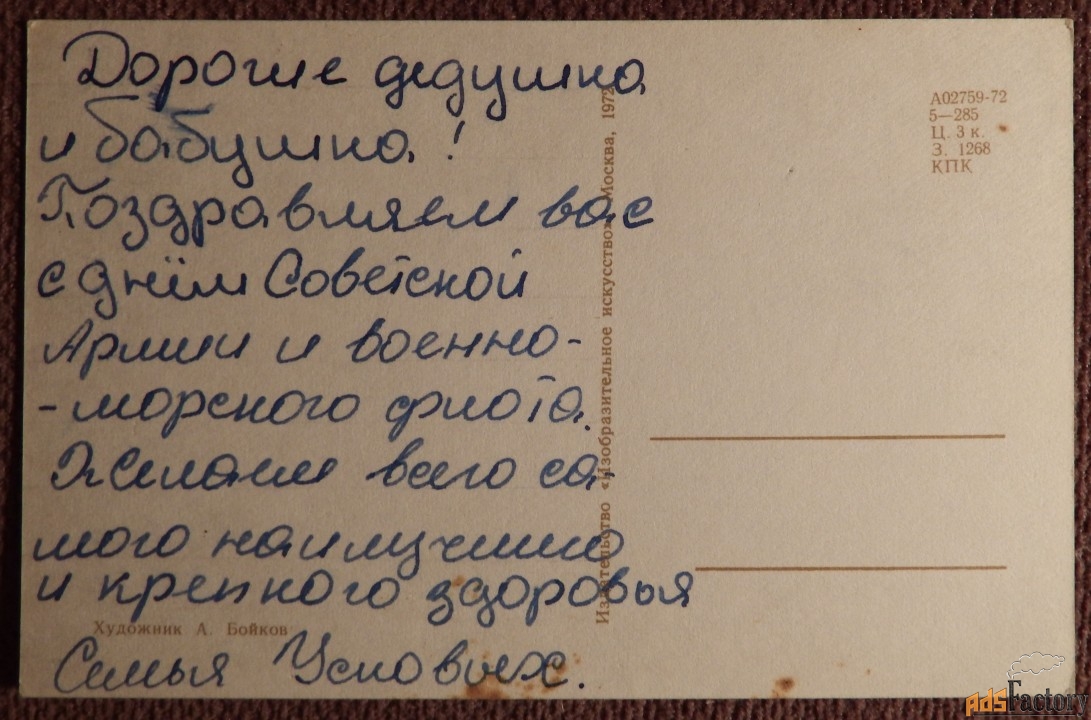 Дорогие дедушка
и бабушка!
Поздравляем вас
с днём Советской
Армии и военно-
-морского флота.
Желаем всего са
мого наилучшего
и крепкого здоровья
Семья
Художник А. Бойков
Издательство «Изобразительное искусство» Москва, 1972
А02759-72
5—285
Ц. 3 к.
З. 1268
КПК
adsFactory